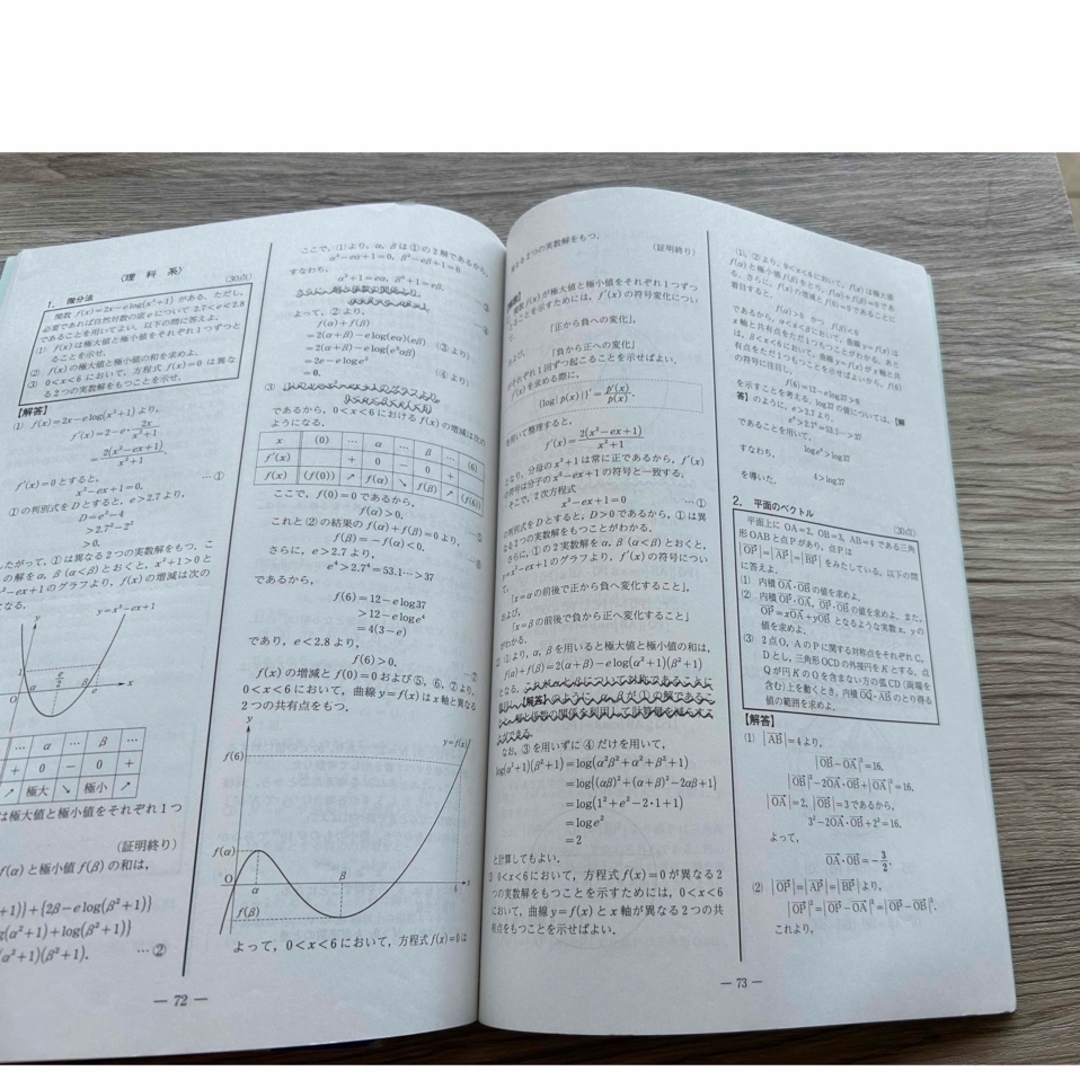 〈理 科 系〉
1. 微分法 (30点)
関数 f(x)=2x-elog(x²+1) がある。ただし，
必要であれば自然対数の底 e について 2.7<e<2.8
であることを用いてよい。以下の問に答えよ。
(1) f(x) は極大値と極小値をそれぞれ1つずつと
ることを示せ。
(2) f(x) の極大値と極小値の和を求めよ。
(3) 0<x<6 において，方程式 f(x)=0 は異な
る2つの実数解をもつことを示せ。
【解答】
(1) f(x)=2x-elog(x²+1) より，
f'(x)=2-e・2x/(x²+1)
=2(x²-ex+1)/(x²+1).
f'(x)=0 とすると，
x²-ex+1=0. …①
①の判別式を D とすると，e>2.7 より，
D=e²-4
>2.7²-2²
>0.
したがって，①は異なる2つの実数解をもつ．こ
の解を α, β (α<β) とおくと，x²+1>0 と
x²-ex+1 のグラフより，f(x) の増減は次の
なる．
y y=x²-ex+1
1
O α e/2 β e x
… α … β …
+ 0 - 0 +
↗ 極大 ↘ 極小 ↗
は極大値と極小値をそれぞれ1つ
(証明終り)
f(α) と極小値 f(β) の和は，
+1)}+{2β-elog(β²+1)}
g(α²+1)+log(β²+1)}
(α²+1)(β²+1). …②
― 72 ―
ここで，(1)より，α, β は①の2解であるから，
α²-eα+1=0, β²-eβ+1=0
すなわち，
α²+1=eα, β²+1=eβ. …③
よって，②より，
f(α)+f(β)
=2(α+β)-elog(eα)(eβ) (③より)
=2(α+β)-elog(e²αβ)
=2e-eloge² (④より)
=0.
(3)
であるから，0<x<6 における f(x) の増減は次の
ようになる．
x (0) … α … β … (6)
f'(x) + 0 - 0 +
f(x) (f(0)) ↗ f(α) ↘ f(β) ↗ (f(6))
ここで，f(0)=0 であるから，
f(α)>0. …⑤
これと(2)の結果の f(α)+f(β)=0 より，
f(β)=-f(α)<0. …⑥
さらに，e>2.7 より，
e⁴>2.7⁴=53.1…>37
であるから，
f(6)=12-elog37
>12-eloge⁴
=4(3-e)
であり，e<2.8 より，
f(6)>0. …⑦
f(x) の増減と f(0)=0 および⑤，⑥，⑦より，
0<x<6 において，曲線 y=f(x) は x 軸と異なる
2つの共有点をもつ．
y y=f(x)
f(6)
f(α)
O α β 6 x
f(β)
よって，0<x<6 において，方程式 f(x)=0 は
異なる2つの実数解をもつ．
(証明終り)
【解説】
関数 f(x) が極大値と極小値をそれぞれ1つずつ
とることを示すためには，f'(x) の符号変化につい
て，
「正から負への変化」，
および，
「負から正への変化」
がそれぞれ1回ずつ起こることを示せばよい．
f'(x) を求める際に，
(log|p(x)|)'=p'(x)/p(x).
を用いて整理すると，
f'(x)=2(x²-ex+1)/(x²+1)
となり，分母の x²+1 は常に正であるから，f'(x)
の符号は分子の x²-ex+1 の符号と一致する．
そこで，2次方程式
x²-ex+1=0 …①
の判別式を D とすると，D>0 であるから，①は異
なる2つの実数解をもつことがわかる．
さらに，①の2実数解を α, β (α<β) とおくと，
y=x²-ex+1 のグラフより，f'(x) の符号につい
て，
「x=α の前後で正から負へ変化すること」，
および，
「x=β の前後で負から正へ変化すること」
がわかる．
①より，α, β を用いると極大値と極小値の和は，
f(α)+f(β)=2(α+β)-elog(α²+1)(β²+1)
となる．
【解答】のように，α, β が①の解であるこ
と，解と係数の関係を利用して計算量を減らすこ
とができる．
なお，③を用いずに④だけを用いて，
log(α²+1)(β²+1)=log(α²β²+α²+β²+1)
=log{(αβ)²+(α+β)²-2αβ+1}
=log(1²+e²-2・1+1)
=loge²
=2
と計算してもよい．
0<x<6 において，方程式 f(x)=0 が異なる2
つの実数解をもつことを示すためには，0<x<6
において，曲線 y=f(x) と x 軸が異なる2つの共
有点をもつことを示せばよい．
― 73 ―
(1), (2)より，0<x<6 において，f(x) は極大値
f(α) と極小値 f(β) をとり，f(α)+f(β)=0 であ
る．さらに，f(x) の増減と f(0)=0 であることに
着目すると，
f(α)>0 かつ f(β)<0
であるから，α<x<β において，曲線 y=f(x) は
x 軸と共有点をただ1つもつことがわかる．あと
は，β<x<6 において，曲線 y=f(x) が x 軸と共
有点をただ1つもつことを示せばよいから，f(6)
の符号に注目し，
f(6)=12-elog37>0
を示すことを考える．log37 の値については，【解
答】のように，e>2.7 より，
e⁴>2.7⁴=53.1…>37
であることを用いて，
loge⁴>log37
すなわち，
4>log37
を導いた．
2. 平面のベクトル (30点)
平面上に OA=2, OB=3, AB=4 である三角
形 OAB と点 P があり，点 P は
|OP|=|AP|=|BP| をみたしている．以下の問
に答えよ．
(1) 内積 OA・OB の値を求めよ．
(2) 内積 OP・OA, OP・OB の値を求めよ．また，
OP=xOA+yOB となるような実数 x, y の
値を求めよ．
(3) 2点 O, A の P に関する対称点をそれぞれ C,
D とし，三角形 OCD の外接円を K とする．点
Q が円 K の O を含まない方の弧 CD (両端を
含む) 上を動くとき，内積 OQ・AB のとり得る
値の範囲を求めよ．
【解答】
(1) |AB|=4 より，
|OB-OA|²=16.
|OB|²-2OA・OB+|OA|²=16.
|OA|=2, |OB|=3 であるから，
3²-2OA・OB+2²=16.
よって，
OA・OB=-3/2.
(2) |OP|=|AP|=|BP| より，
|OP|²=|OP-OA|²=|OP-OB|².
これより，